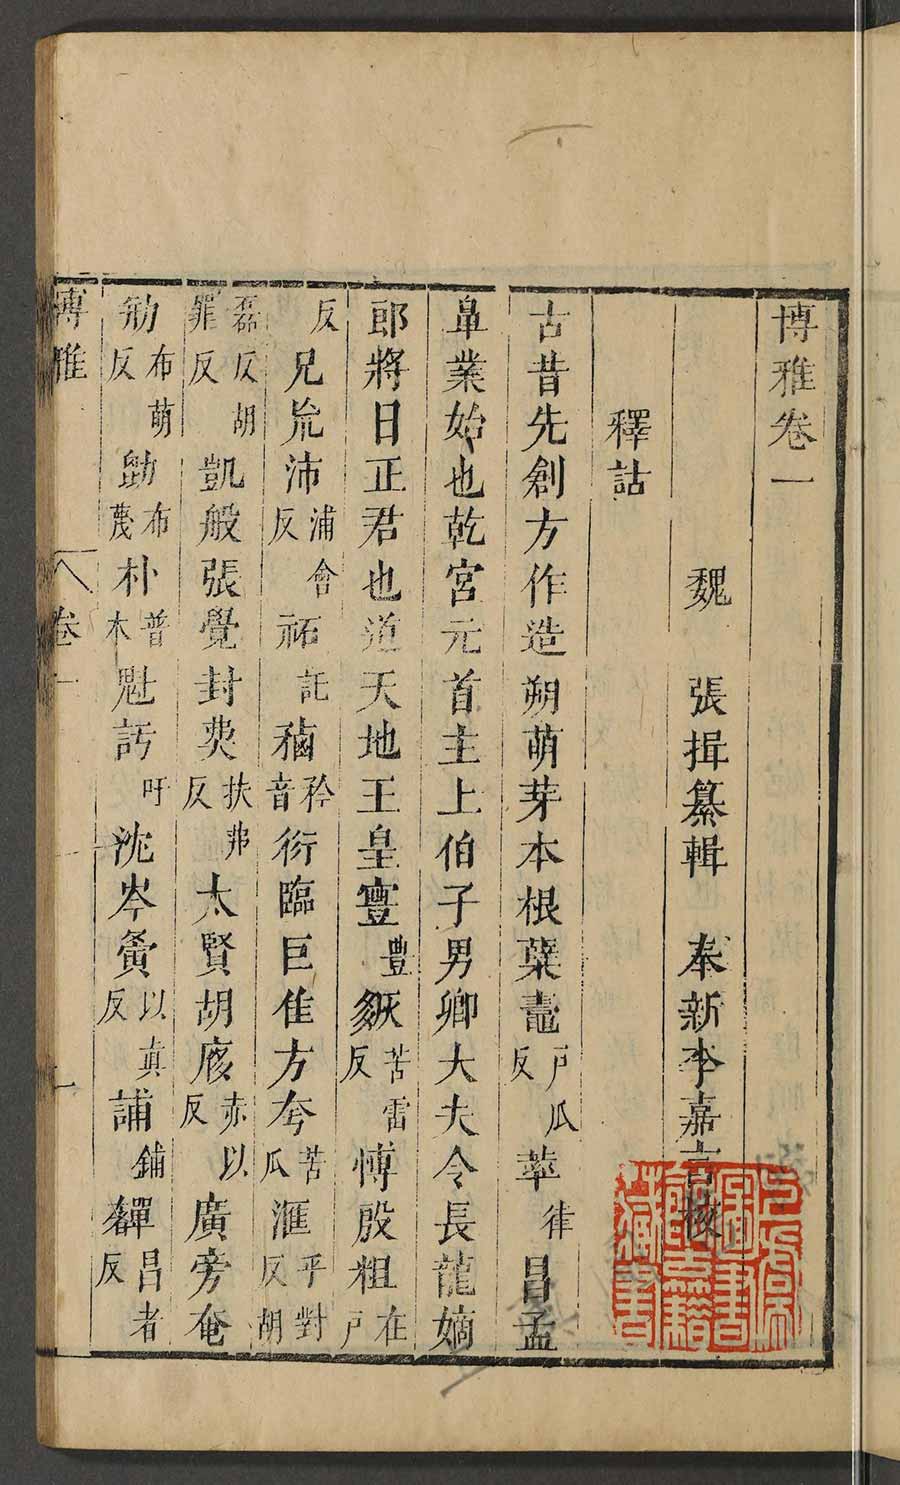 博雅卷一
魏　張揖纂輯　奉新李嘉言校
釋詁
古昔先創方作造朔萌芽本根蘗鼃戶瓜反萃律昌孟
鼻業始也乾宮元首主上伯子男卿大夫令長龍嫡
郎將日正君也道天地王皇寷豊㒀苦雷反博殷粗在戶
反兄㡃沛浦會反祏託䄎矜音衍臨巨隹方夸苦瓜滙乎對反胡
磊反胡罪反凱般張覺封奰扶弗反太賢胡㡿赤以反廣旁奄
勏布萌反㔜布蔑朴普木魁訏吁沈岑夤以真反誧鋪奲昌者反
博雅　卷一　一